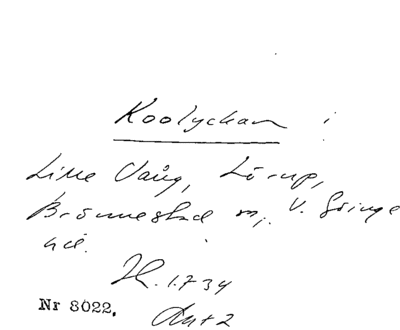 Koolyckan
Lille Vång, Lörup,
Brönnestad sn, V. Göinge
hd.
H. 1734
Nr 8022.